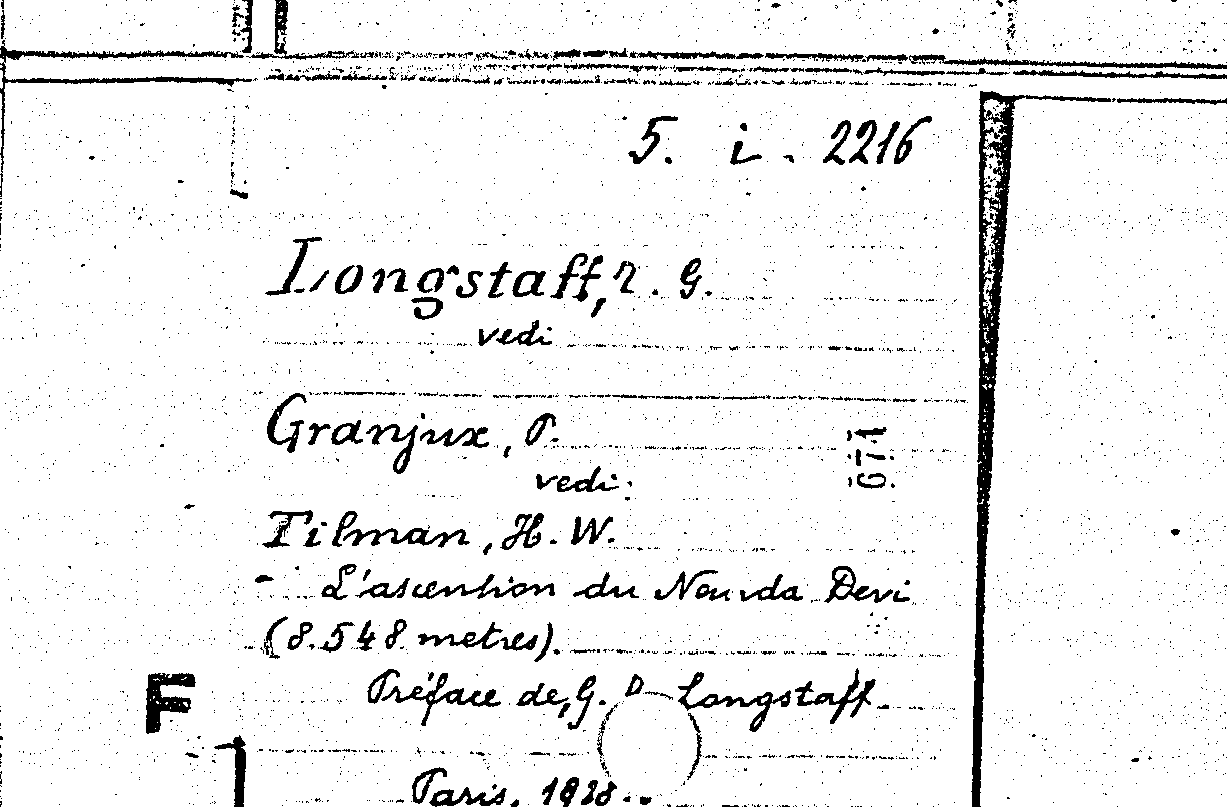 5. i. 2216
Longstaff, T. G.
vedi
Granjux, P.
671
vedi:
Tilman, H. W.
- L'ascention du Nounda Devi
(8.548 metres).
F
Préface de, G. D Longstaff.
Paris, 1938..